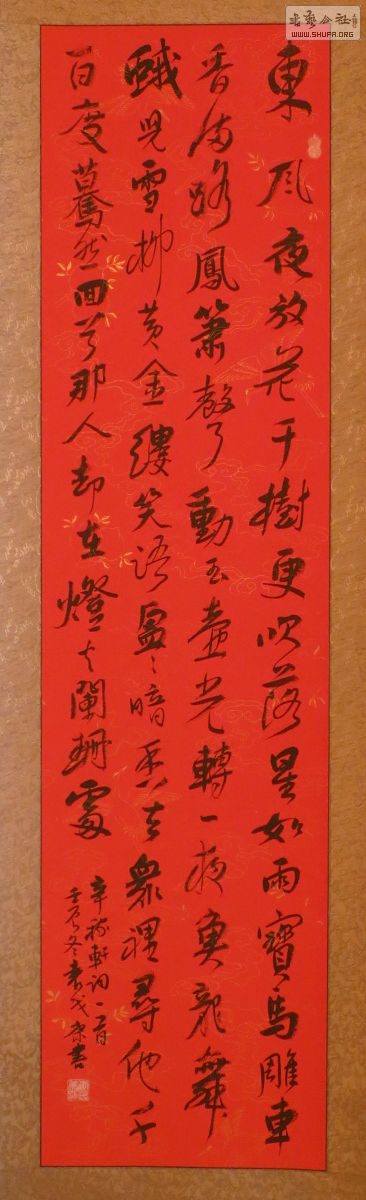 東風夜放花千樹更吹落星如雨寶馬雕車
香滿路鳳簫聲動玉壺光轉一夜魚龍舞
蛾兒雪柳黃金縷笑語盈々暗香去衆裡尋他千
百度驀然回首那人却在燈火闌珊處
辛稼軒詞一首
壬辰冬 書
書藝公社
WWW.SHUFA.ORG